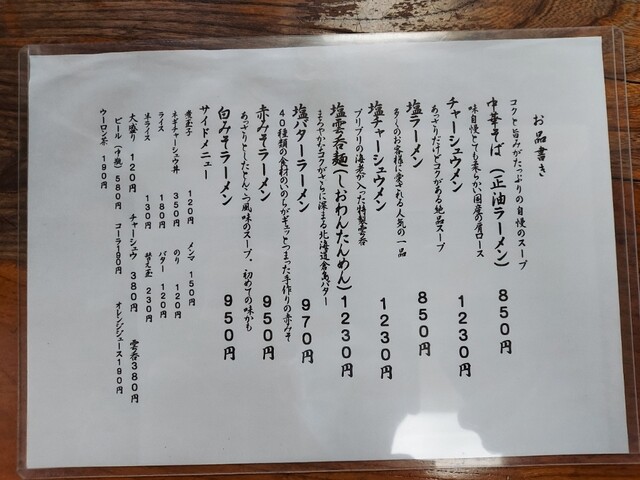 お品書き
コクと旨みがたっぷりの自慢のスープ
中華そば（正油ラーメン） 850円
味自慢とても柔らかい国産の肩ロース
チャーシュウメン 1230円
あっさりだけどコクがある絶品スープ
塩ラーメン 850円
多くのお客様に愛される人気の一品
塩チャーシュウメン 1230円
プリプリの海老が入った特製雲呑
塩雲呑麺（しおわんたんめん） 1230円
まろやかなコクがさらに深まる北海道倉島バター
塩バターラーメン 970円
40種類の食材のいのちがギュッとつまった手作りの赤みそ
赤みそラーメン 950円
あっさりとしたとんこつ風味のスープ、初めての味かも
白みそラーメン 950円
サイドメニュー
煮玉子 120円 メンマ 150円
ネギチャーシュウ丼 350円 のり 120円
ライス 180円 バター 120円
半ライス 130円 替え玉 230円
大盛り 120円 チャーシュウ 380円 雲呑 380円
ビール（中瓶） 580円 コーラ190円 オレンジジュース190円
ウーロン茶 190円